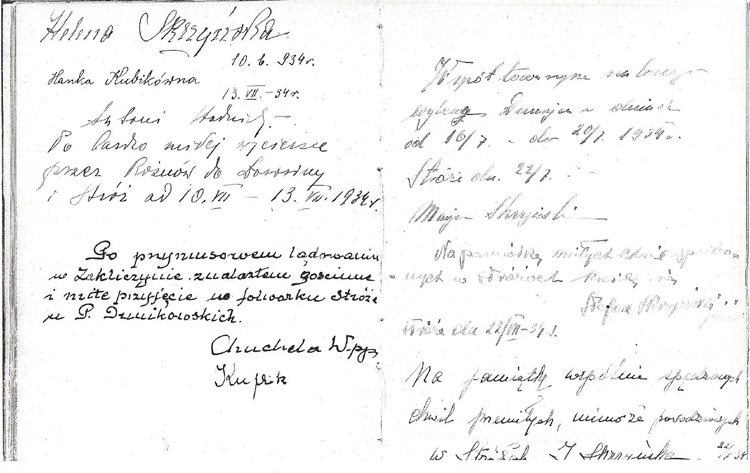 Helena Skrzyńska
10.6.934r.
Hanka Kubikówna
13.VII.-34r.
Antoni
Po bardzo miłej wycieczce
przez Rożnów do Łososiny
i Stróż od 10.VII – 13.VII.1934r.
Po przymusowem lądowaniu
w Zakliczynie znalazłem gościnne
i miłe przyjęcie w folwarku Stróże
u P. Dunikowskich.
Chuchela W. ppr.
Kuprik
Współtowarzysz
Dunajca w dniach
od 16/7. – do 20/7. 1934r.
Stróże dn. 22/7.
Marja Skrzyński
Na pamiątkę miłych chwil spędzo-
nych w Stróżach kreślę się
Stefan Skrzyński
Stróże dn 22/VII-34r.
Na pamiątkę wspólnie spędzonych
chwil przemiłych, mimoże powodziowych
w Stróżach J Skrzyńska 22/7 34